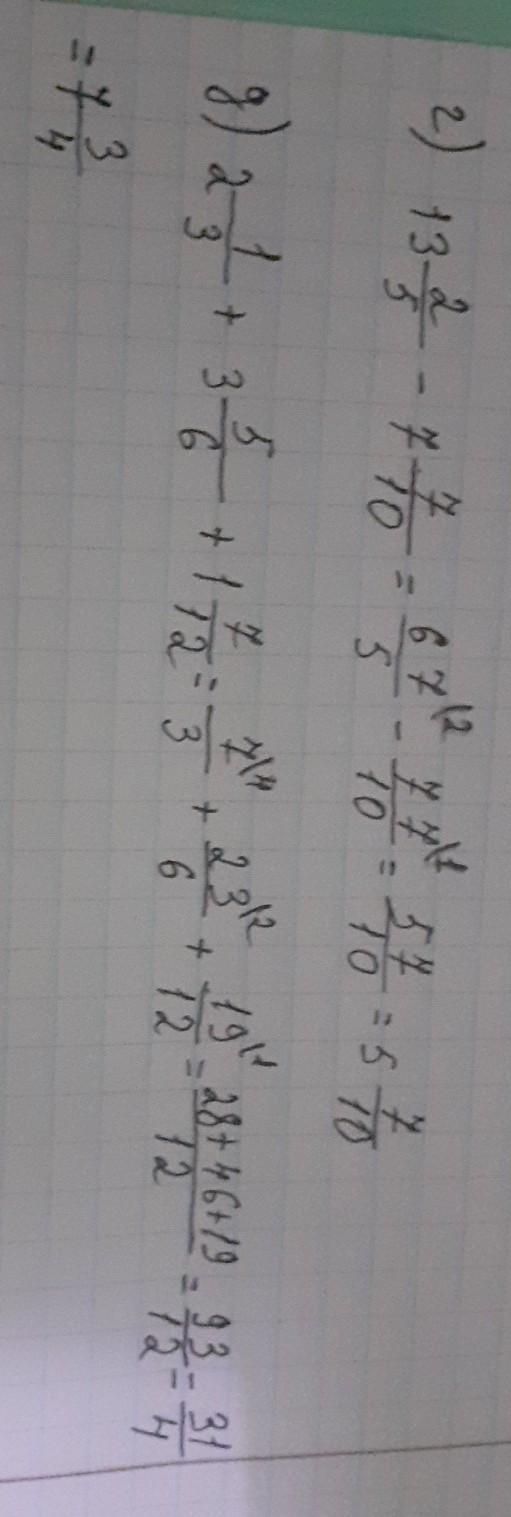 г) 13 2/5 - 7 7/10 = 67\2/5 - 77\1/10 = 57/10 = 5 7/10
д) 2 1/3 + 3 5/6 + 1 7/12 = 7\4/3 + 23\2/6 + 19\1/12 = 28+46+19/12 = 93/12 = 31/4
= 7 3/4